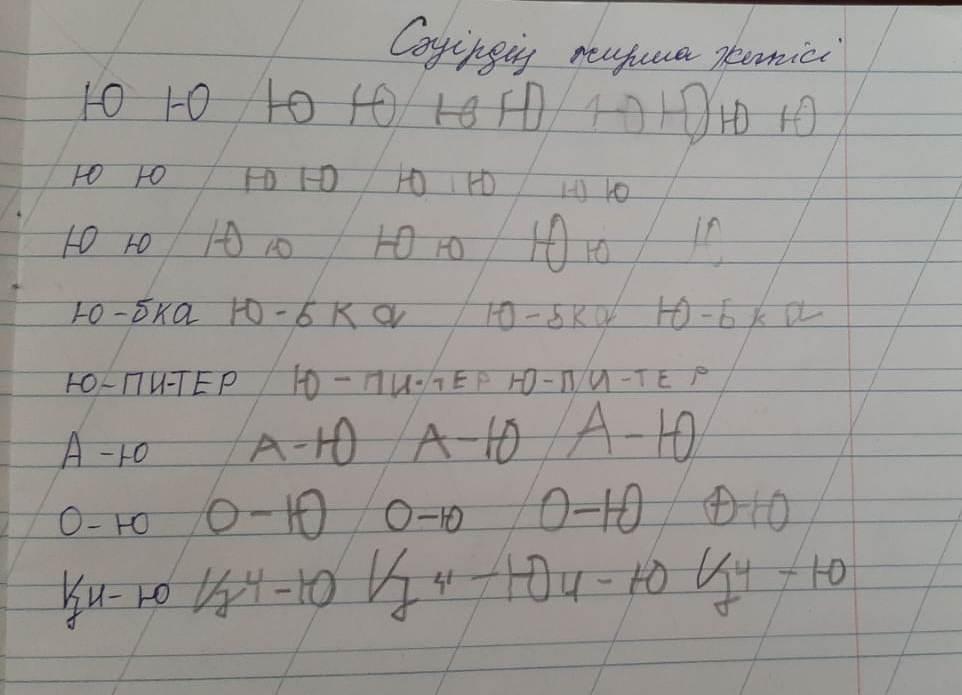 Сәуірдің жирма жетісі
Ю Ю Ю Ю Ю Ю Ю Ю Ю Ю
ю ю ю ю ю ю ю ю
Ю ю Ю ю Ю ю Ю ю Ю
Ю-бка Ю-бка Ю-бка Ю-бка
Ю-ПИ-ТЕР Ю-ПИ-ТЕР Ю-ПИ-ТЕР
А-Ю А-Ю А-Ю А-Ю
О-Ю О-Ю О-Ю О-Ю О-Ю